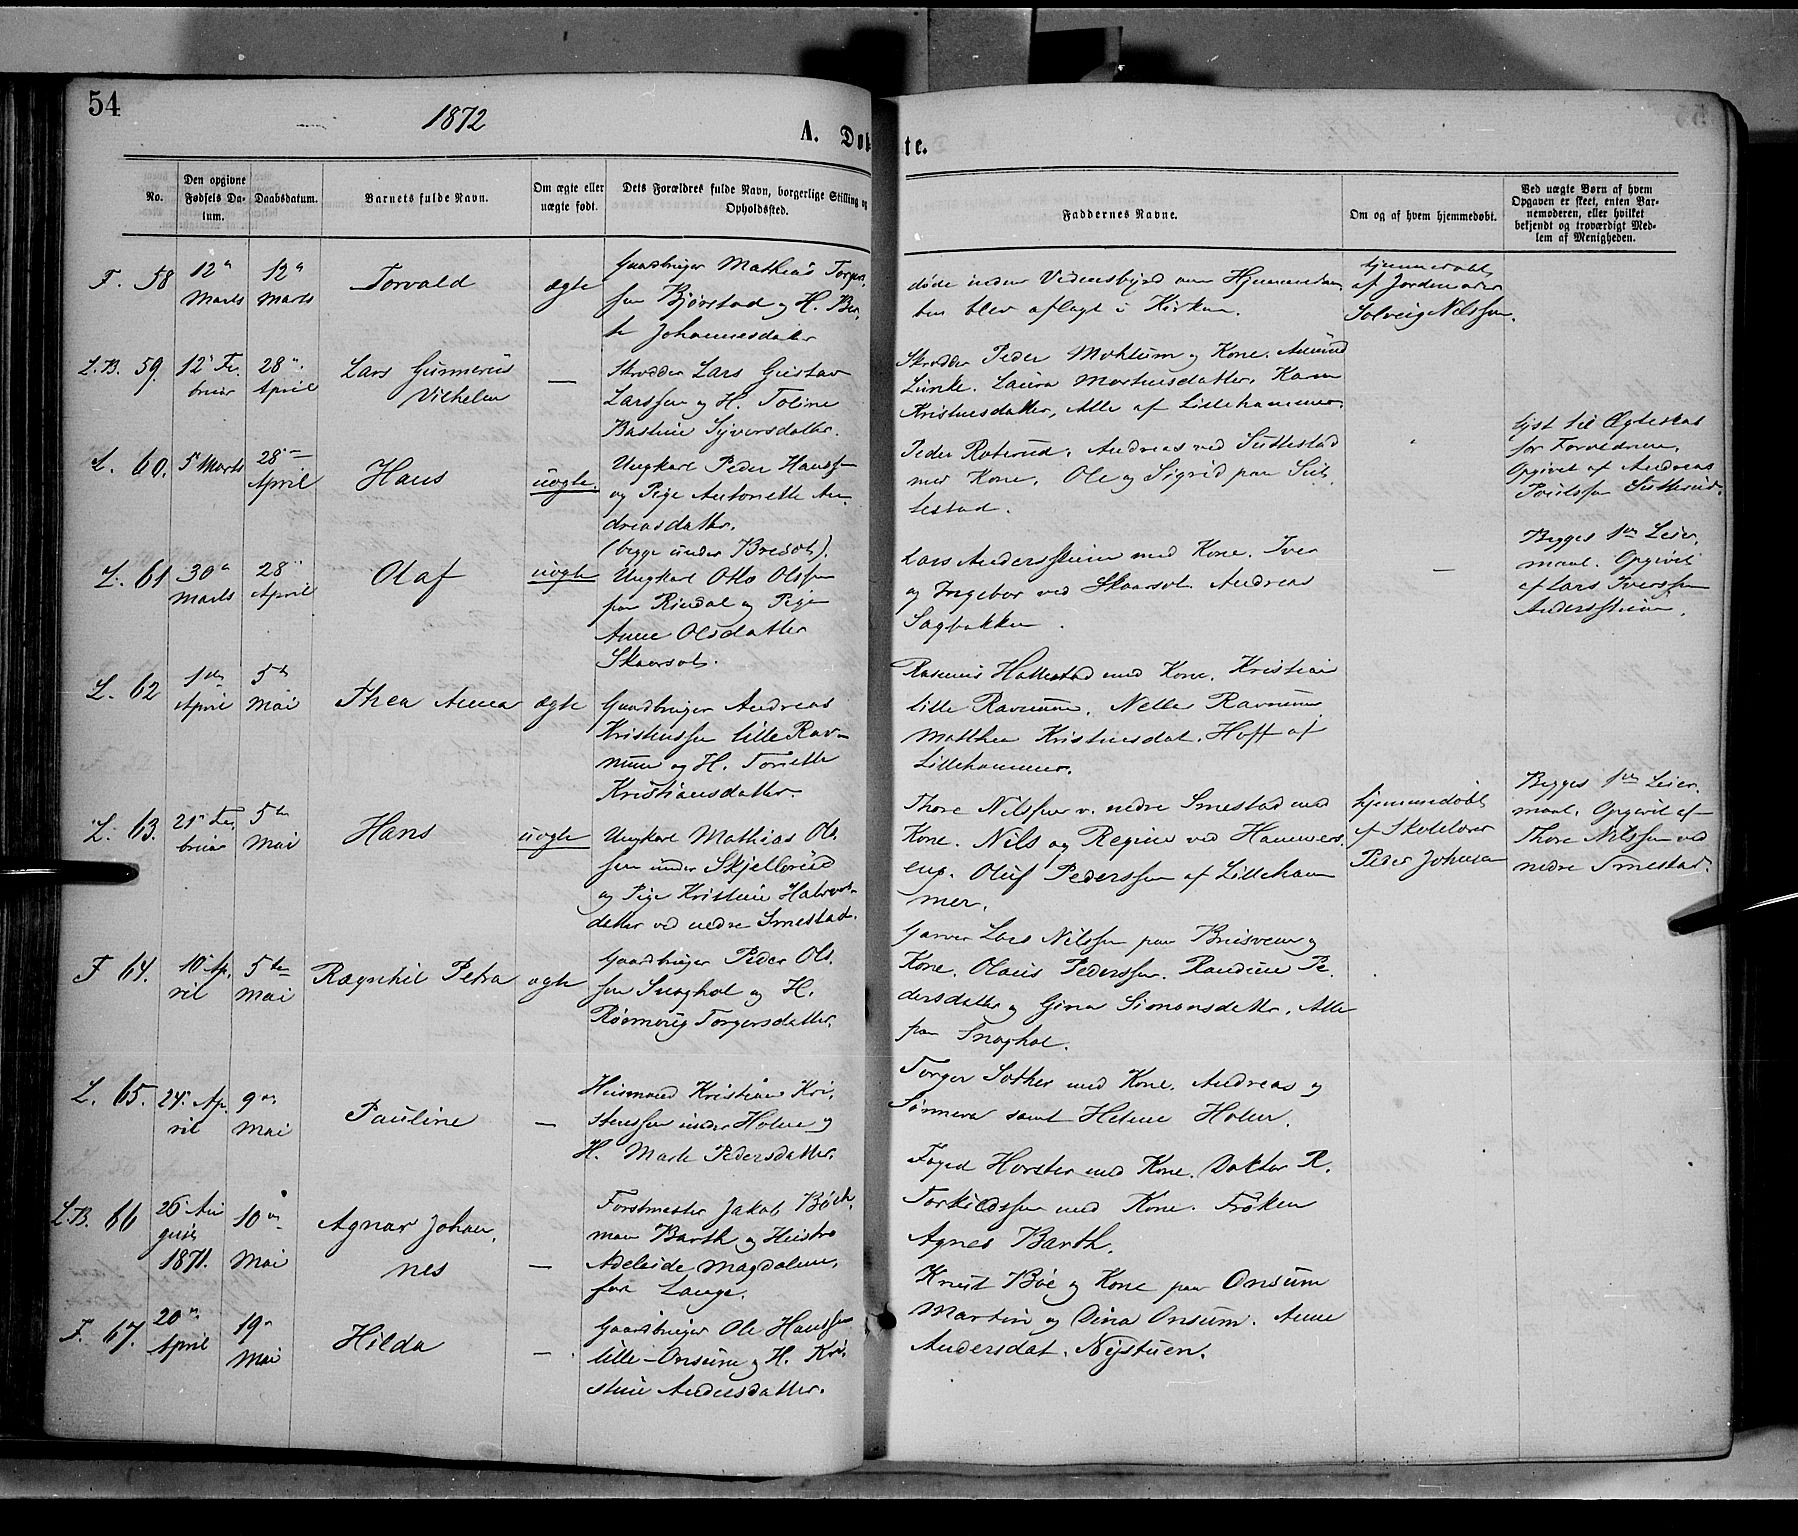 54
1872
A. Døbte.
No.
Den opgivne Fødsels Datum.
Daabsdatum.
Barnets fulde Navn.
Om ægte eller uægte født.
Dets Forældres fulde Navn, borgerlige Stilling og Opholdssted.
Faddernes Navne.
Om og af hvem hjemmedøbt.
Ved uægte Børn af hvem Opgaven er skeet, enten Barnemoderen, eller hvilket bekjendt og troværdigt Medlem af Menigheden.
F. 58
12te Marts
12te Marts
Torvald
ægte
Gaardbruger Mathias Torger-
sen Bjørstad og H. Ber-
te Johannesdatter
døde inden Vidensbyrd om Hjemmedaa-
ben blev aflagt i Kirken.
hjemmedøbt
af Jordemoder
Solveig Nilssen.
L.B. 59.
12te Fe-
bruar
28de
April
Lars Gunnerius
Vilhelm
—
Skrædder Lars Gustav
Larssen og H. Toline
Bastine Syversdatter.
Skrædder Peder Mohlum og Kone. Amund
Lunke. Laura Martinsdatter. Karen
Kristinsdatter, Alle af Lillehammer.
L. 60.
5te Marts
28de
April
Hans
uægte
Ungkarl Peder Hanssen
og Pige Antonette An-
dreasdatter.
(begge under Bresøt).
Peder Roterud. Andreas ved Suttestad
med Kone. Ole og Sigrid paa Sut-
testad.
Lyst til Ægteskab
for Forældrene.
Opgivet af Andreas
Poulssen Sutterud.
L. 61
30te
Marts
28de
April
Olaf
uægte
Ungkarl Otto Olssen
paa Rindal og Pige
Anne Olsdatter
Skaarsøt.
Lars Anderssstuen med Kone. Iver
og Ingebor ved Skaarsøt. Andreas
Sagbakken.
—
Begges 1ste Leier-
maal. Opgivet
af Lars Iverssen
Andersstuen.
L. 62
1ste
April
5te
Mai
Thea Anna
ægte
Gaardbruger Andreas
Kristenssen lille Rav-
num og H. Toriette
Kristiansdatter.
Rasmus Hallestad med Kone. Kristian
lille Ravnum. Nelle Ravnum
Matthea Kristinsdat. Hoff af
Lillehammer.
L. 63.
21de Fe-
bruar
5te
Mai
Hans
uægte
Ungkarl Mathias Ols-
sen under Skjellerud
og Pige Kristine Halvors-
datter ved nedre Smestad.
Thore Nilssen v. nedre Smestad med
Kone. Nils og Regine ved Hammers-
eng. Oluf Pederssen af Lilleham-
mer.
hjemmedøbt
af Skolelærer
Peder Johnsen
Begges 1ste Leier-
maal. Opgivet af
Thore Nilssen ved
nedre Smestad.
F 64.
10de Ap-
ril
5te
Mai
Ragnhil Petra
ægte
Gaardbruger Peder Ols-
sen Snoghol og H.
Rønnaug Torgersdatter.
Garver Lars Nilssen paa Brusveen og
Kone. Olaus Pederssen. Randine Pe-
dersdatter og Gina Simonsdatter, Alle
paa Snoghol.
L. 65.
24de Ap-
ril
9de
Mai
Pauline
—
Huusmand Kristian Kri-
stenssen under Holme og
H. Marte Pedersdatter.
Torger Sother med Kone. Andreas og
samt Helene Holen.
L.B. 66
26de Au-
gust
1871.
10de
Mai
Agnar Johan-
nes
—
Forstmester Jakob Bøck-
man Barth og Hustro
Adeleide Magdalene,
født Lange.
Foged Horster med Kone. Doktor R.
Torkildssen med Kone. Frøken
Agnes Barth.
F. 67.
20de
April
19de
Mai
Hilda
—
Gaardbruger Ole Hanssen
lille-Onsum og H. Kri-
stine Andersdatter.
Knut Bøe og Kone paa Onsum
Martin og Dina Onsum. Anne
Andersdat. Nystuen.